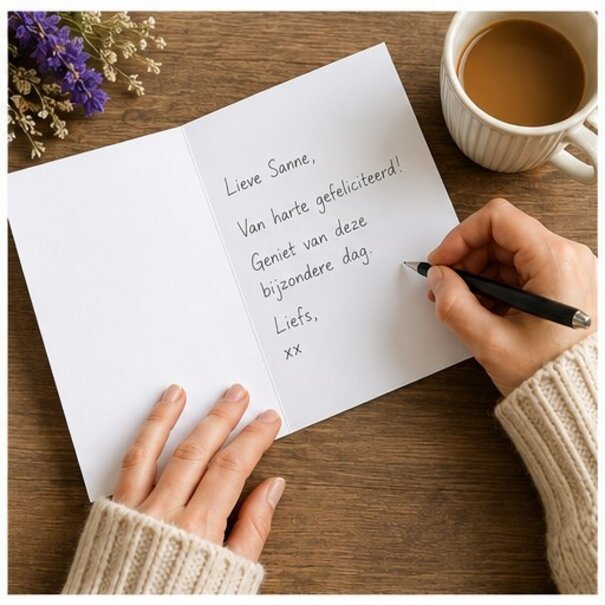 Lieve Sanne,
Van harte gefeliciteerd!
Geniet van deze
bijzondere dag.
Liefs,
xx